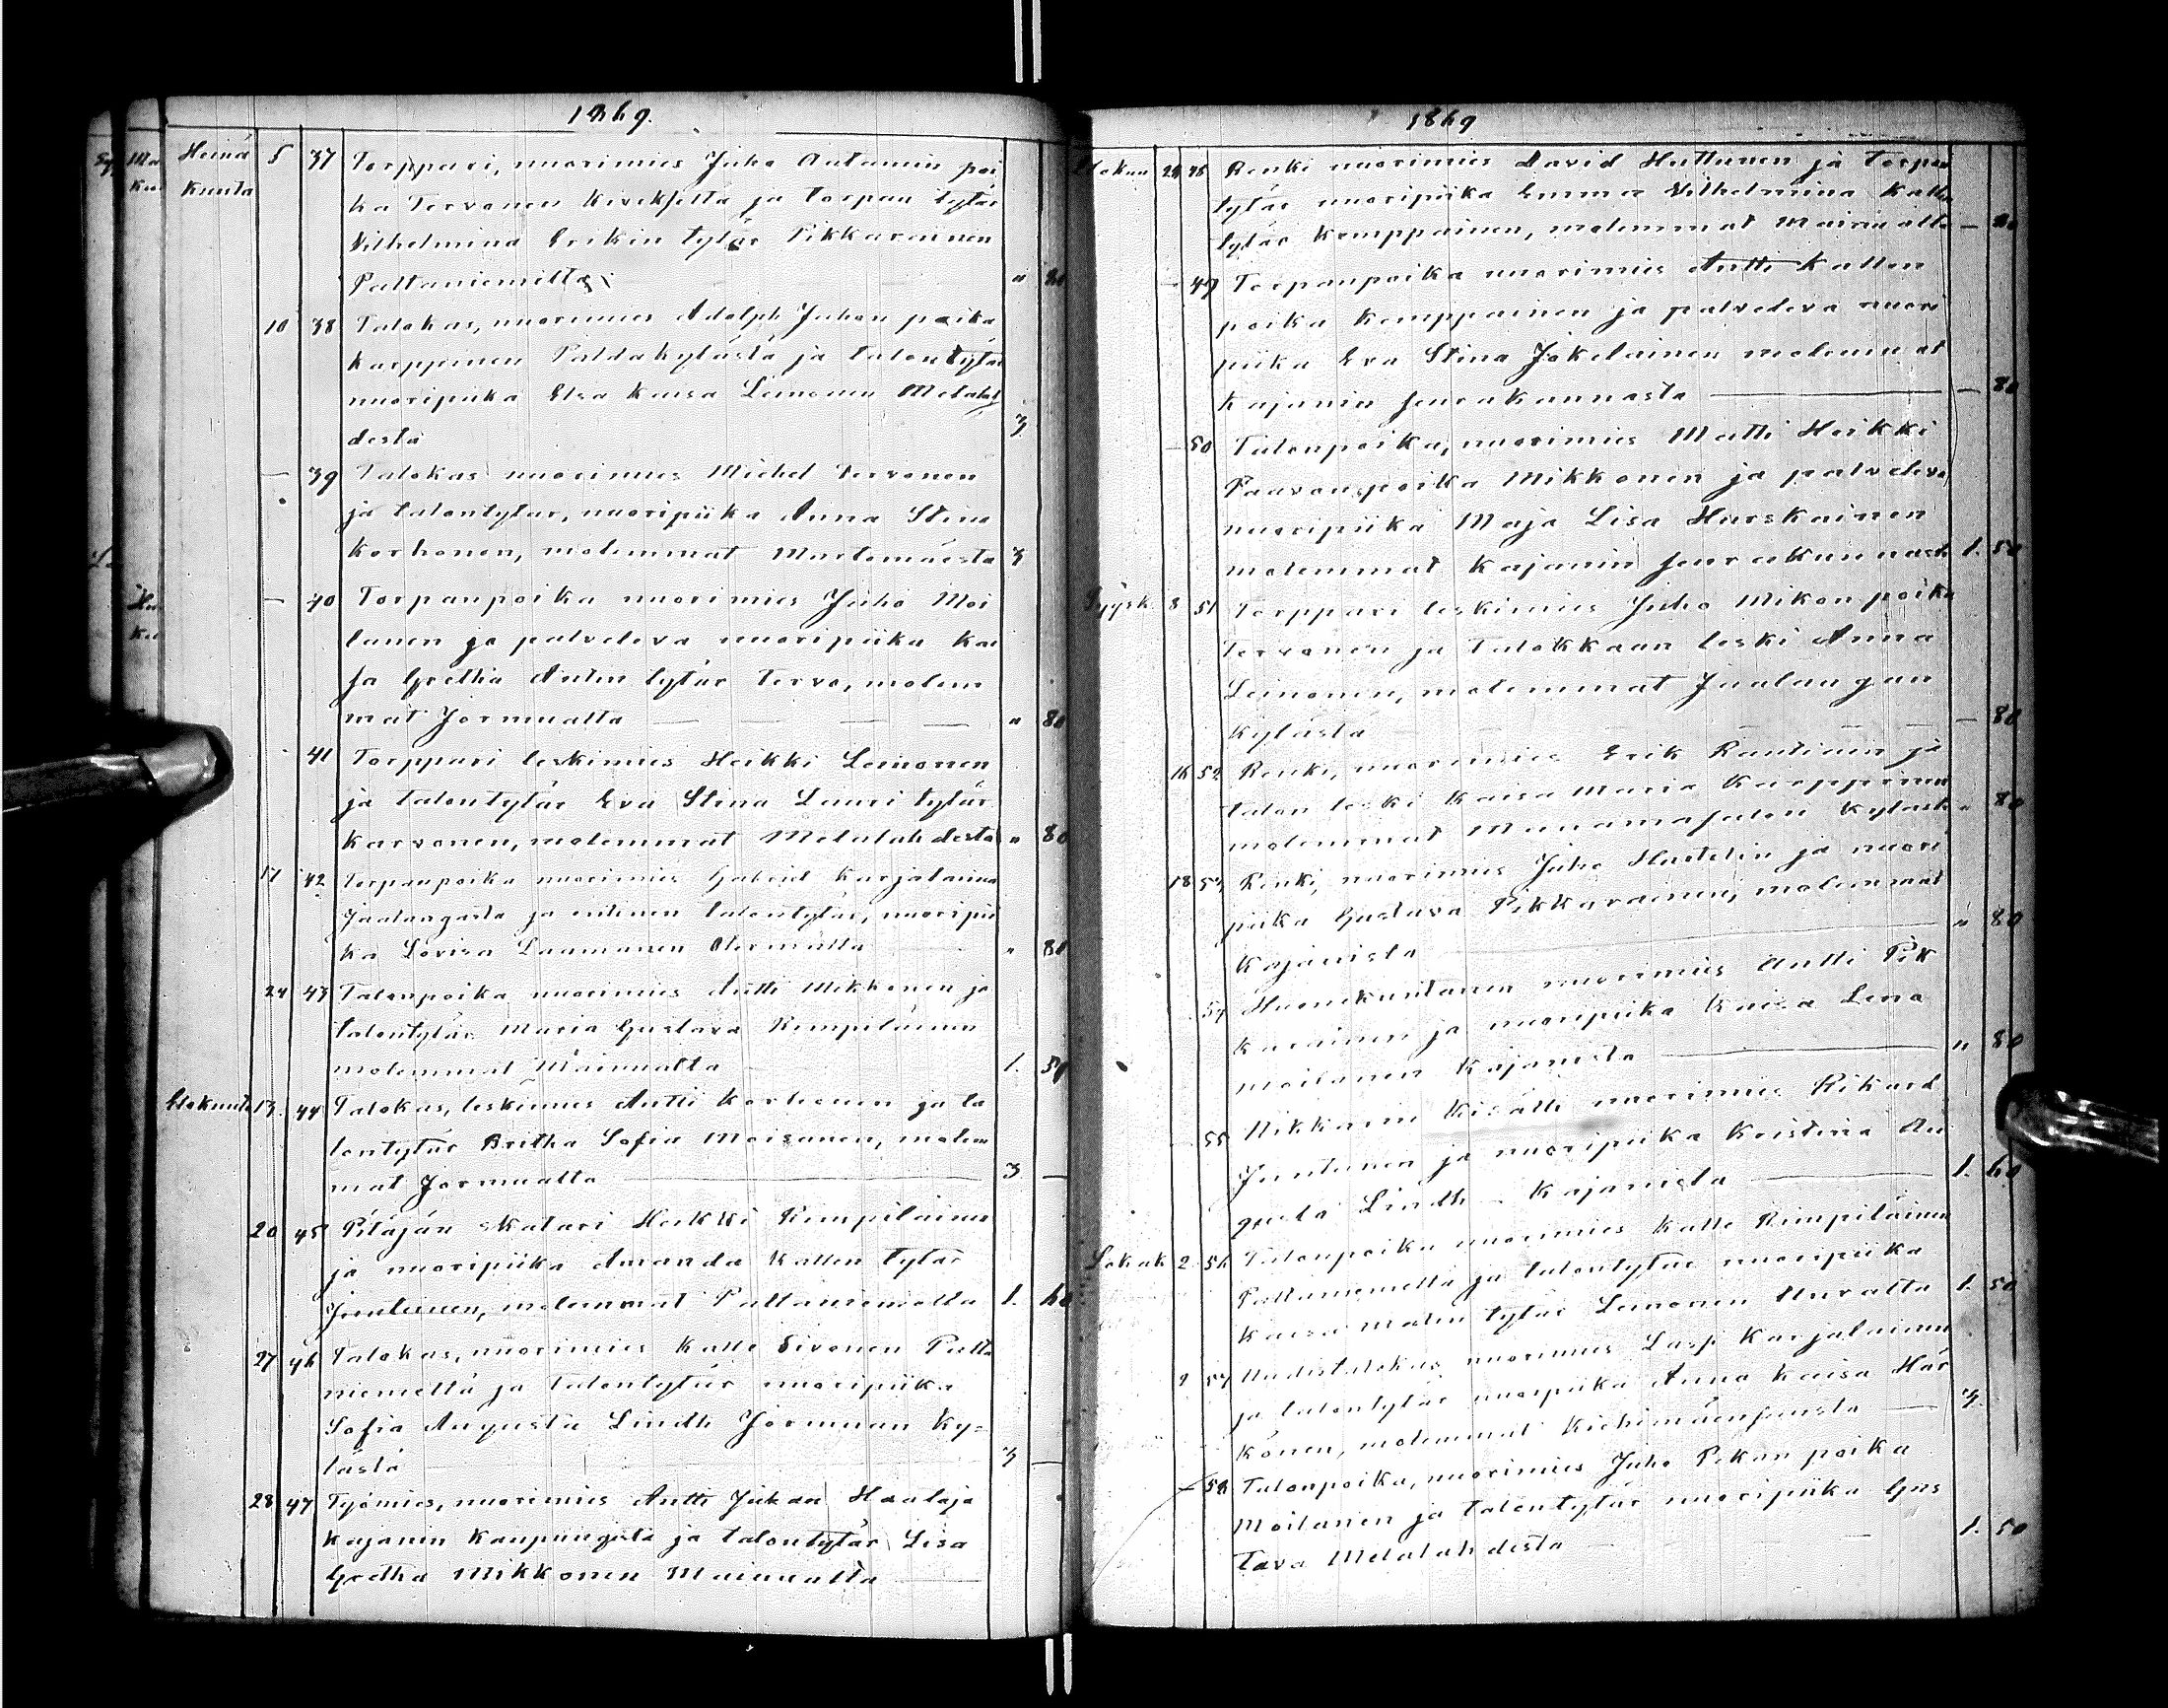 1869.
Heinä 5 37 Torppari, nuorimies Juho Antamin poi
kuuta ka Tervonen Kiveksestä ja torpan tytär
Vilhelmina Erikin tytär Pikkarainen
Paltaniemiltä " 80
10 38 Talokas, nuorimies Adolph Juhon poika
Karppinen Paldakylästä ja talontytär
nuoripiika Elsa Kaisa Leinonen Melalah
destä 3
— 39 Talokas nuorimies Michel Tervonen
ja talontytär, nuoripiika Anna Stina
Korhonen, molemmat Murtomäestä 3
— 40 Torpanpoika nuorimies Juho Moi
lanen ja palveleva nuoripiika Kai
sa Gretha Antin tytär Tervo, molem
mat Jormualta — — — — " 80
41 Torppari leskimies Heikki Leinonen
ja talontytär Eva Stina Lauri tytär
Karvonen, molemmat Melalahdesta " 80
17 42 torpanpoika nuorimies Gabriel Karjalainen
Jaalangasta ja entinen talontytär, nuoripii
ka Lovisa Laamanen Otermalta " 80
24 43 Talonpoika nuorimies Antti Mikkonen ja
talontytär Maria Gustava Rimpiläinen
molemmat Mainualta 1. 50
Elokuuta 13. 44 Talokas, leskimies Antti Korhonen ja ta
lontytär Britha Sofia Moisanen, molem
mat Jormualta — 3 —
20 45 Pitäjän skatari Heikki Rimpiläinen
ja nuoripiika Amanda Kallen tytär
Juntunen, molemmat Paltaniemeltä 1. 60
27 46 Talokas, nuorimies Kalle Sivonen Palta
niemeltä ja talontytär nuoripiika
Sofia Augusta Lindh Jormuan ky=
lästä 3 —
28 47 Työmies, nuorimies Antti Juhan Haataja
Kajanin kaupungista ja talontytär Lisa
Gretha Mikkonen Mainualta —
1869
Elokuu 29 48 Renki nuorimies David Huttunen ja torpan
tytär nuoripiika Emma Vilhelmina Kallen
tytär Kemppainen, molemmat Mainualta — 80
— 49 Torpanpoika nuorimies Antti Kallen
poika Kemppainen ja palveleva nuori
piika Eva Stina Jokelainen molemmat
Kajanin seurakunnasta — — 80
— 50 Talonpoika, nuorimies Matti Heikki
Paavonpoika Mikkonen ja palveleva
nuoripiika Maja Lisa Hurskainen
molemmat Kajanin seurakunnasta 1. 50
Syysk. 8 51 Torppari leskimies Juho Mikonpoika
Tervonen ja Talokkaan leski Anna
Leinonen, molemmat Jaalangan
kylästä — 80
16 52 Renki, nuorimies Erik Rautiain ja
talon leski Kaisa Maria Karppinen
molemmat Manamasalon kylästä " 80
18 53 Renki, nuorimies Juho Huotelin ja nuori
piika Gustava Pikkarainen, molemmat
Kajanista — " 80
54 Huonekuntanen nuorimies Antti Pik
karainen ja nuoripiika Kaisa Lena
Moilanen Kajanista — " 80
55 Nikkarin Kisälli nuorimies Rikard
Juntunen ja nuoripiika Kristina Au
gusta Lindh Kajanista — 1. 60
Lokak 2 56 Talonpoika nuorimies Kalle Rimpiläinen
Paltaniemeltä ja talontytär nuoripiika
Kaisa Matin tytär Leinonen Uuralta 1. 50
9 57 Uudistalokas nuorimies Lasse Karjalainen
ja talontytär nuoripiika Anna Kaisa Här
könen, molemmat Kiehimäensuusta — 3.
— 58 Talonpoika, nuorimies Juho Pekan poika
Moilanen ja talontytär nuoripiika Gus
tava Melalahdesta 1. 50